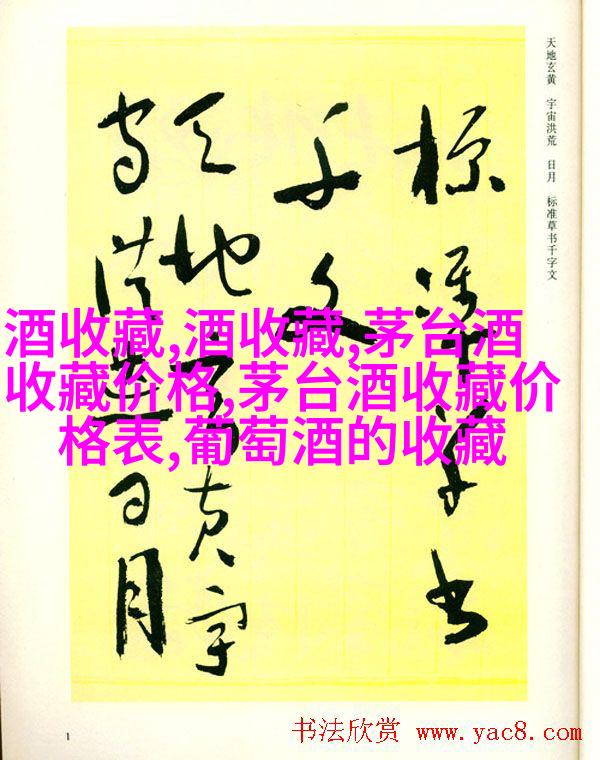 天地玄黄 宇宙洪荒 日月 标准草书千字文
标准草书
千文
天地玄黄宇
宙洪荒日月
酒收藏,酒收藏,茅台酒
收藏价格,茅台酒收藏价
格表,葡萄酒的收藏
1
书法欣赏 www.yac8.com